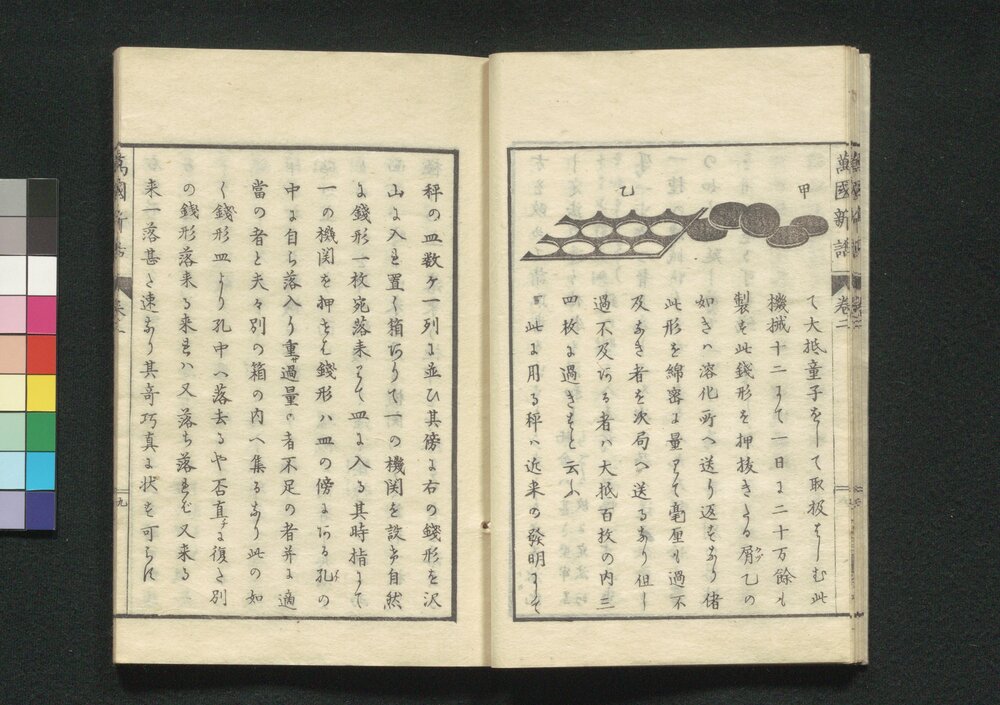 萬國新話
卷二
甲
乙
て大抵童子をして取扱はしむ此
機械十二にて一日に二十万餘も
製す此錢形を押抜きたる屑乙の
クヅ
如きハ溶化所へ送り返すなり偖
此形を綿密に量りて毫厘も過不
及なき者を次局へ送るなり但し
過不及ある者ハ大抵百枚の内三
四枚に過きすと云ふ
此に用る秤ハ近来の發明にて
秤の皿数ケ一列に並ひ其傍に右の錢形を沢
山に入れ置く箱ありて一の機関を設け自然
に錢形一枚宛落来りて皿に入る其時指にて
一の機関を押せは錢形ハ皿の傍にある孔の
中に自ら落入り重過量の者不足の者并に適
當の者と夫々別の箱の内へ集るなり此の如
く錢形皿より孔中へ落去るや否直に復た別
の錢形落来る来れハ又落ち落れバ又来る
来一落甚た速なり其奇巧真に状す可らす
萬國新話
卷二
九